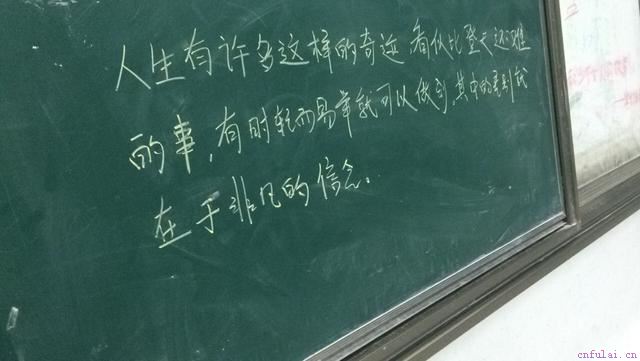 人生有许多这样的奇迹 看似比登天还难
的事,有时轻而易举就可以做到,其中的差别就
在于非凡的信念。
cnfulai.cn